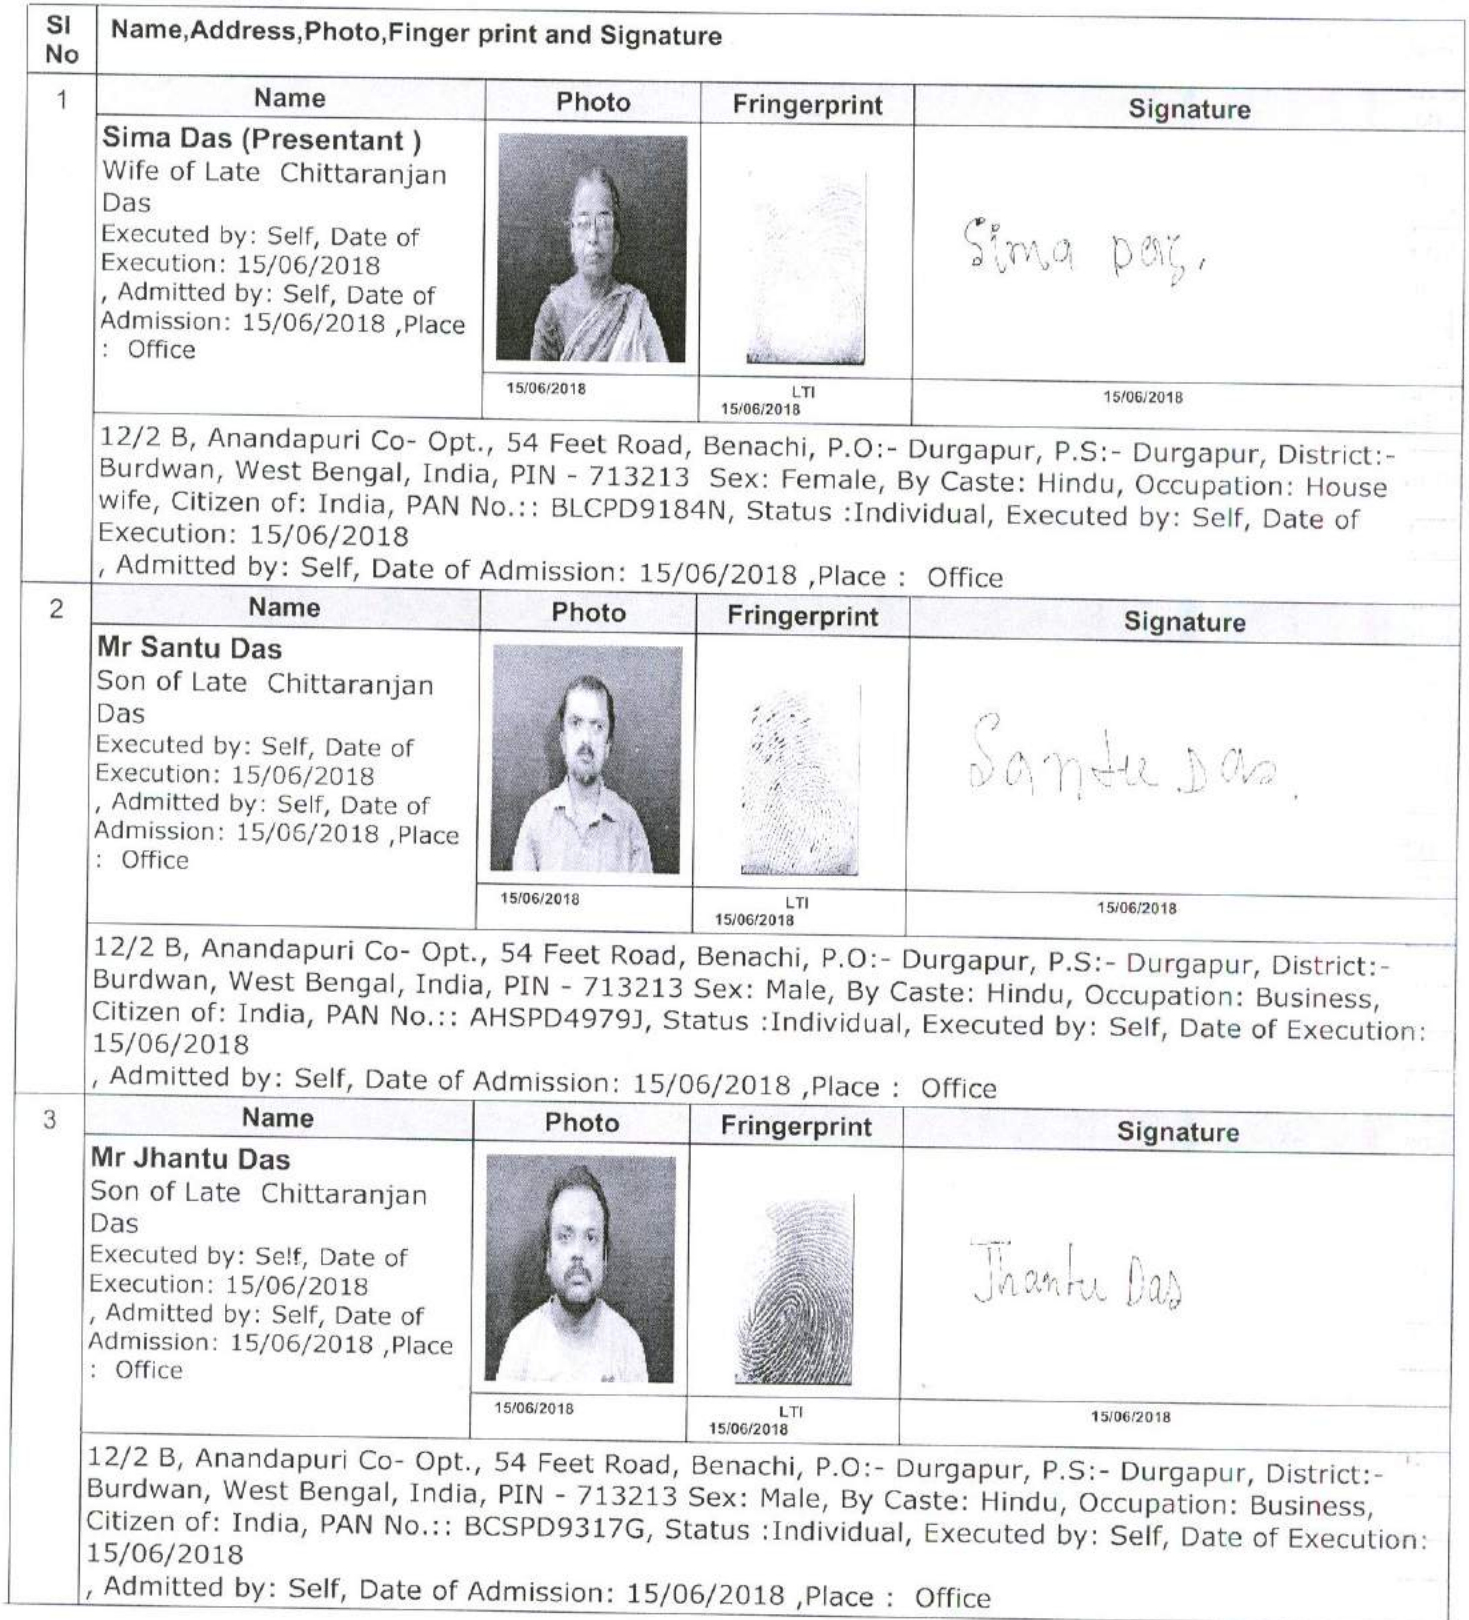 Sl No
Name,Address,Photo,Finger print and Signature
1
Name
Photo
Fringerprint
Signature
Sima Das (Presentant )
Wife of Late Chittaranjan
Das
Executed by: Self, Date of
Execution: 15/06/2018
, Admitted by: Self, Date of
Admission: 15/06/2018 ,Place
: Office
Sima Das.
15/06/2018
LTI
15/06/2018
15/06/2018
12/2 B, Anandapuri Co- Opt., 54 Feet Road, Benachi, P.O:- Durgapur, P.S:- Durgapur, District:-
Burdwan, West Bengal, India, PIN - 713213 Sex: Female, By Caste: Hindu, Occupation: House
wife, Citizen of: India, PAN No.:: BLCPD9184N, Status :Individual, Executed by: Self, Date of
Execution: 15/06/2018
, Admitted by: Self, Date of Admission: 15/06/2018 ,Place : Office
2
Name
Photo
Fringerprint
Signature
Mr Santu Das
Son of Late Chittaranjan
Das
Executed by: Self, Date of
Execution: 15/06/2018
, Admitted by: Self, Date of
Admission: 15/06/2018 ,Place
: Office
Santu Das.
15/06/2018
LTI
15/06/2018
15/06/2018
12/2 B, Anandapuri Co- Opt., 54 Feet Road, Benachi, P.O:- Durgapur, P.S:- Durgapur, District:-
Burdwan, West Bengal, India, PIN - 713213 Sex: Male, By Caste: Hindu, Occupation: Business,
Citizen of: India, PAN No.:: AHSPD4979J, Status :Individual, Executed by: Self, Date of Execution:
15/06/2018
, Admitted by: Self, Date of Admission: 15/06/2018 ,Place : Office
3
Name
Photo
Fringerprint
Signature
Mr Jhantu Das
Son of Late Chittaranjan
Das
Executed by: Self, Date of
Execution: 15/06/2018
, Admitted by: Self, Date of
Admission: 15/06/2018 ,Place
: Office
Jhantu Das
15/06/2018
LTI
15/06/2018
15/06/2018
12/2 B, Anandapuri Co- Opt., 54 Feet Road, Benachi, P.O:- Durgapur, P.S:- Durgapur, District:-
Burdwan, West Bengal, India, PIN - 713213 Sex: Male, By Caste: Hindu, Occupation: Business,
Citizen of: India, PAN No.:: BCSPD9317G, Status :Individual, Executed by: Self, Date of Execution:
15/06/2018
, Admitted by: Self, Date of Admission: 15/06/2018 ,Place : Office